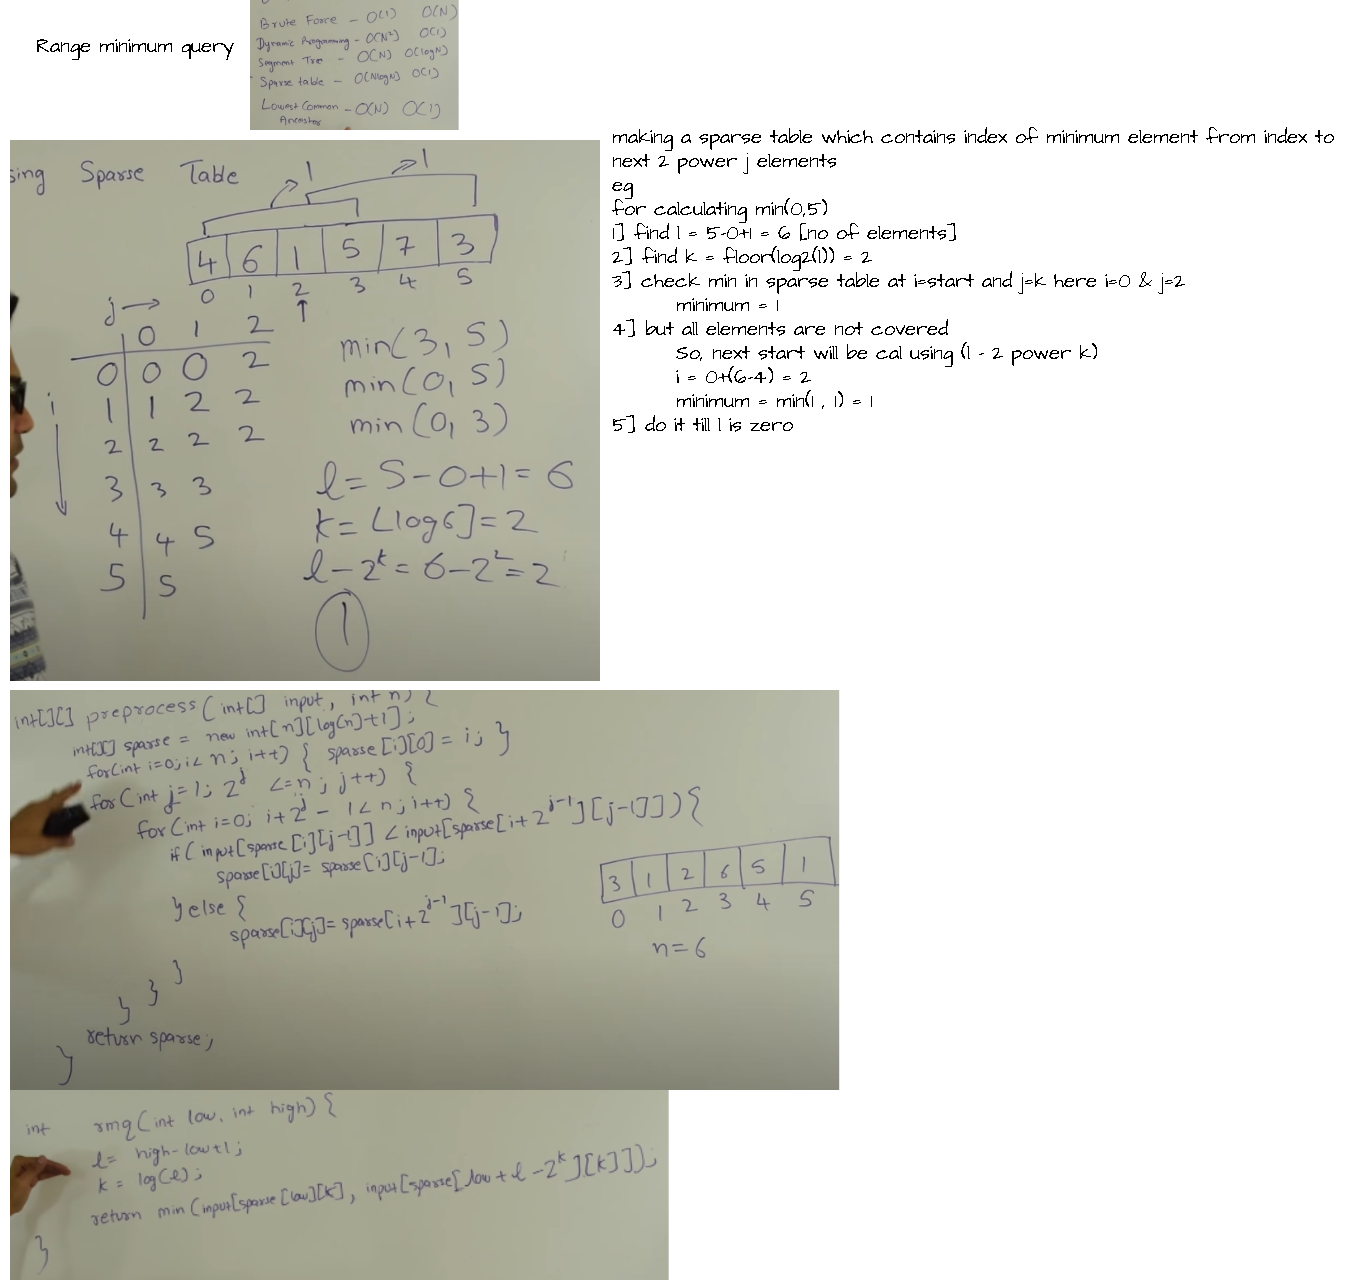 Range minimum query
Brute Force - O(1) O(N)
Dynamic Programming - O(N²) O(1)
Segment Tree - O(N) O(logN)
Sparse table - O(NlogN) O(1)
Lowest Common - O(N) O(1)
Ancestor
sing Sparse Table
1 1
4 6 1 5 7 3
0 1 2 3 4 5
j →
0 1 2
0 0 0 2
i
1 1 2 2
2 2 2 2
3 3 3
4 4 5
5 5
min(3, 5)
min(0, 5)
min(0, 3)
l = 5-0+1 = 6
k = ⌊log6⌋ = 2
l-2ᵏ = 6-2² = 2
1
making a sparse table which contains index of minimum element from index to
next 2 power j elements
eg
for calculating min(0,5)
1] find l = 5-0+1 = 6 [no of elements]
2] find k = floor(log2(l)) = 2
3] check min in sparse table at i=start and j=k here i=0 & j=2
minimum = 1
4] but all elements are not covered
So, next start will be cal using (l - 2 power k)
i = 0+(6-4) = 2
minimum = min(1 , 1) = 1
5] do it till l is zero
int[][] preprocess(int[] input, int n) {
int[][] sparse = new int[n][log(n)+1];
for(int i=0; i< n; i++) { sparse[i][0] = i; }
for(int j=1; 2^j <=n; j++) {
for(int i=0; i+2^j - 1 < n; i++) {
if( input[sparse[i][j-1]] < input[sparse[i+2^j-1][j-1]]) {
sparse[i][j]= sparse[i][j-1];
} else {
sparse[i][j]= sparse[i+2^j-1][j-1];
}
}
}
return sparse;
}
3 1 2 6 5 1
0 1 2 3 4 5
n=6
int rmq(int low, int high) {
l= high-low+1;
k = log(l);
return min(input[sparse[low][k], input[sparse[low + l -2^k][k]]);
}